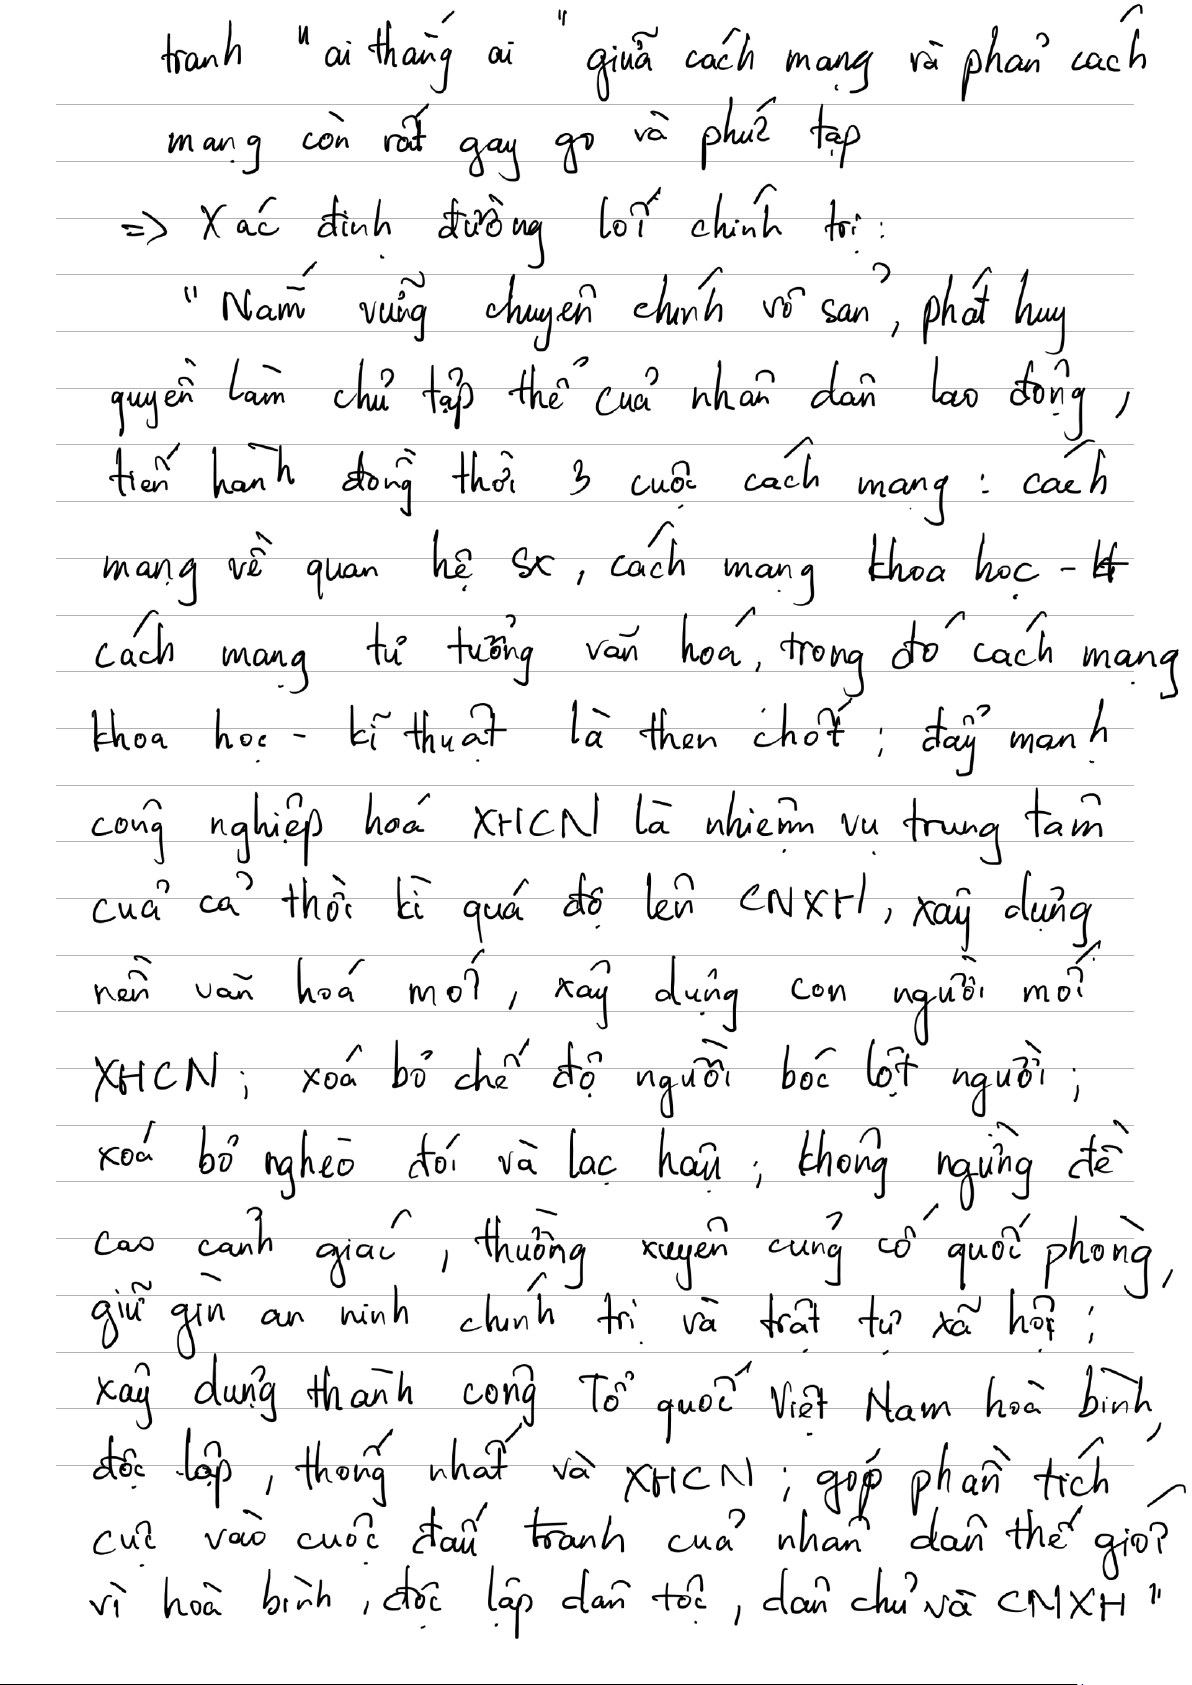 tranh "ai thắng ai" giữa cách mạng và phản cách
mạng còn rất gay go và phức tạp
=> Xác định đường lối chính trị:
"Nắm vững chuyên chính vô sản, phát huy
quyền làm chủ tập thể của nhân dân lao động,
tiến hành đồng thời 3 cuộc cách mạng: cách
mạng về quan hệ sx, cách mạng khoa học - kt
cách mạng tư tưởng văn hoá, trong đó cách mạng
khoa học - kĩ thuật là then chốt; đẩy mạnh
công nghiệp hoá XHCN là nhiệm vụ trung tâm
của cả thời kì quá độ lên CNXH, xây dựng
nền văn hoá mới, xây dựng con người mới
XHCN; xoá bỏ chế độ người bóc lột người;
xoá bỏ nghèo đói và lạc hậu; không ngừng đề
cao cảnh giác, thường xuyên củng cố quốc phòng,
giữ gìn an ninh chính trị và trật tự xã hội;
xây dựng thành công Tổ quốc Việt Nam hoà bình,
độc lập, thống nhất và XHCN; góp phần tích
cực vào cuộc đấu tranh của nhân dân thế giới
vì hoà bình, độc lập dân tộc, dân chủ và CMXH"